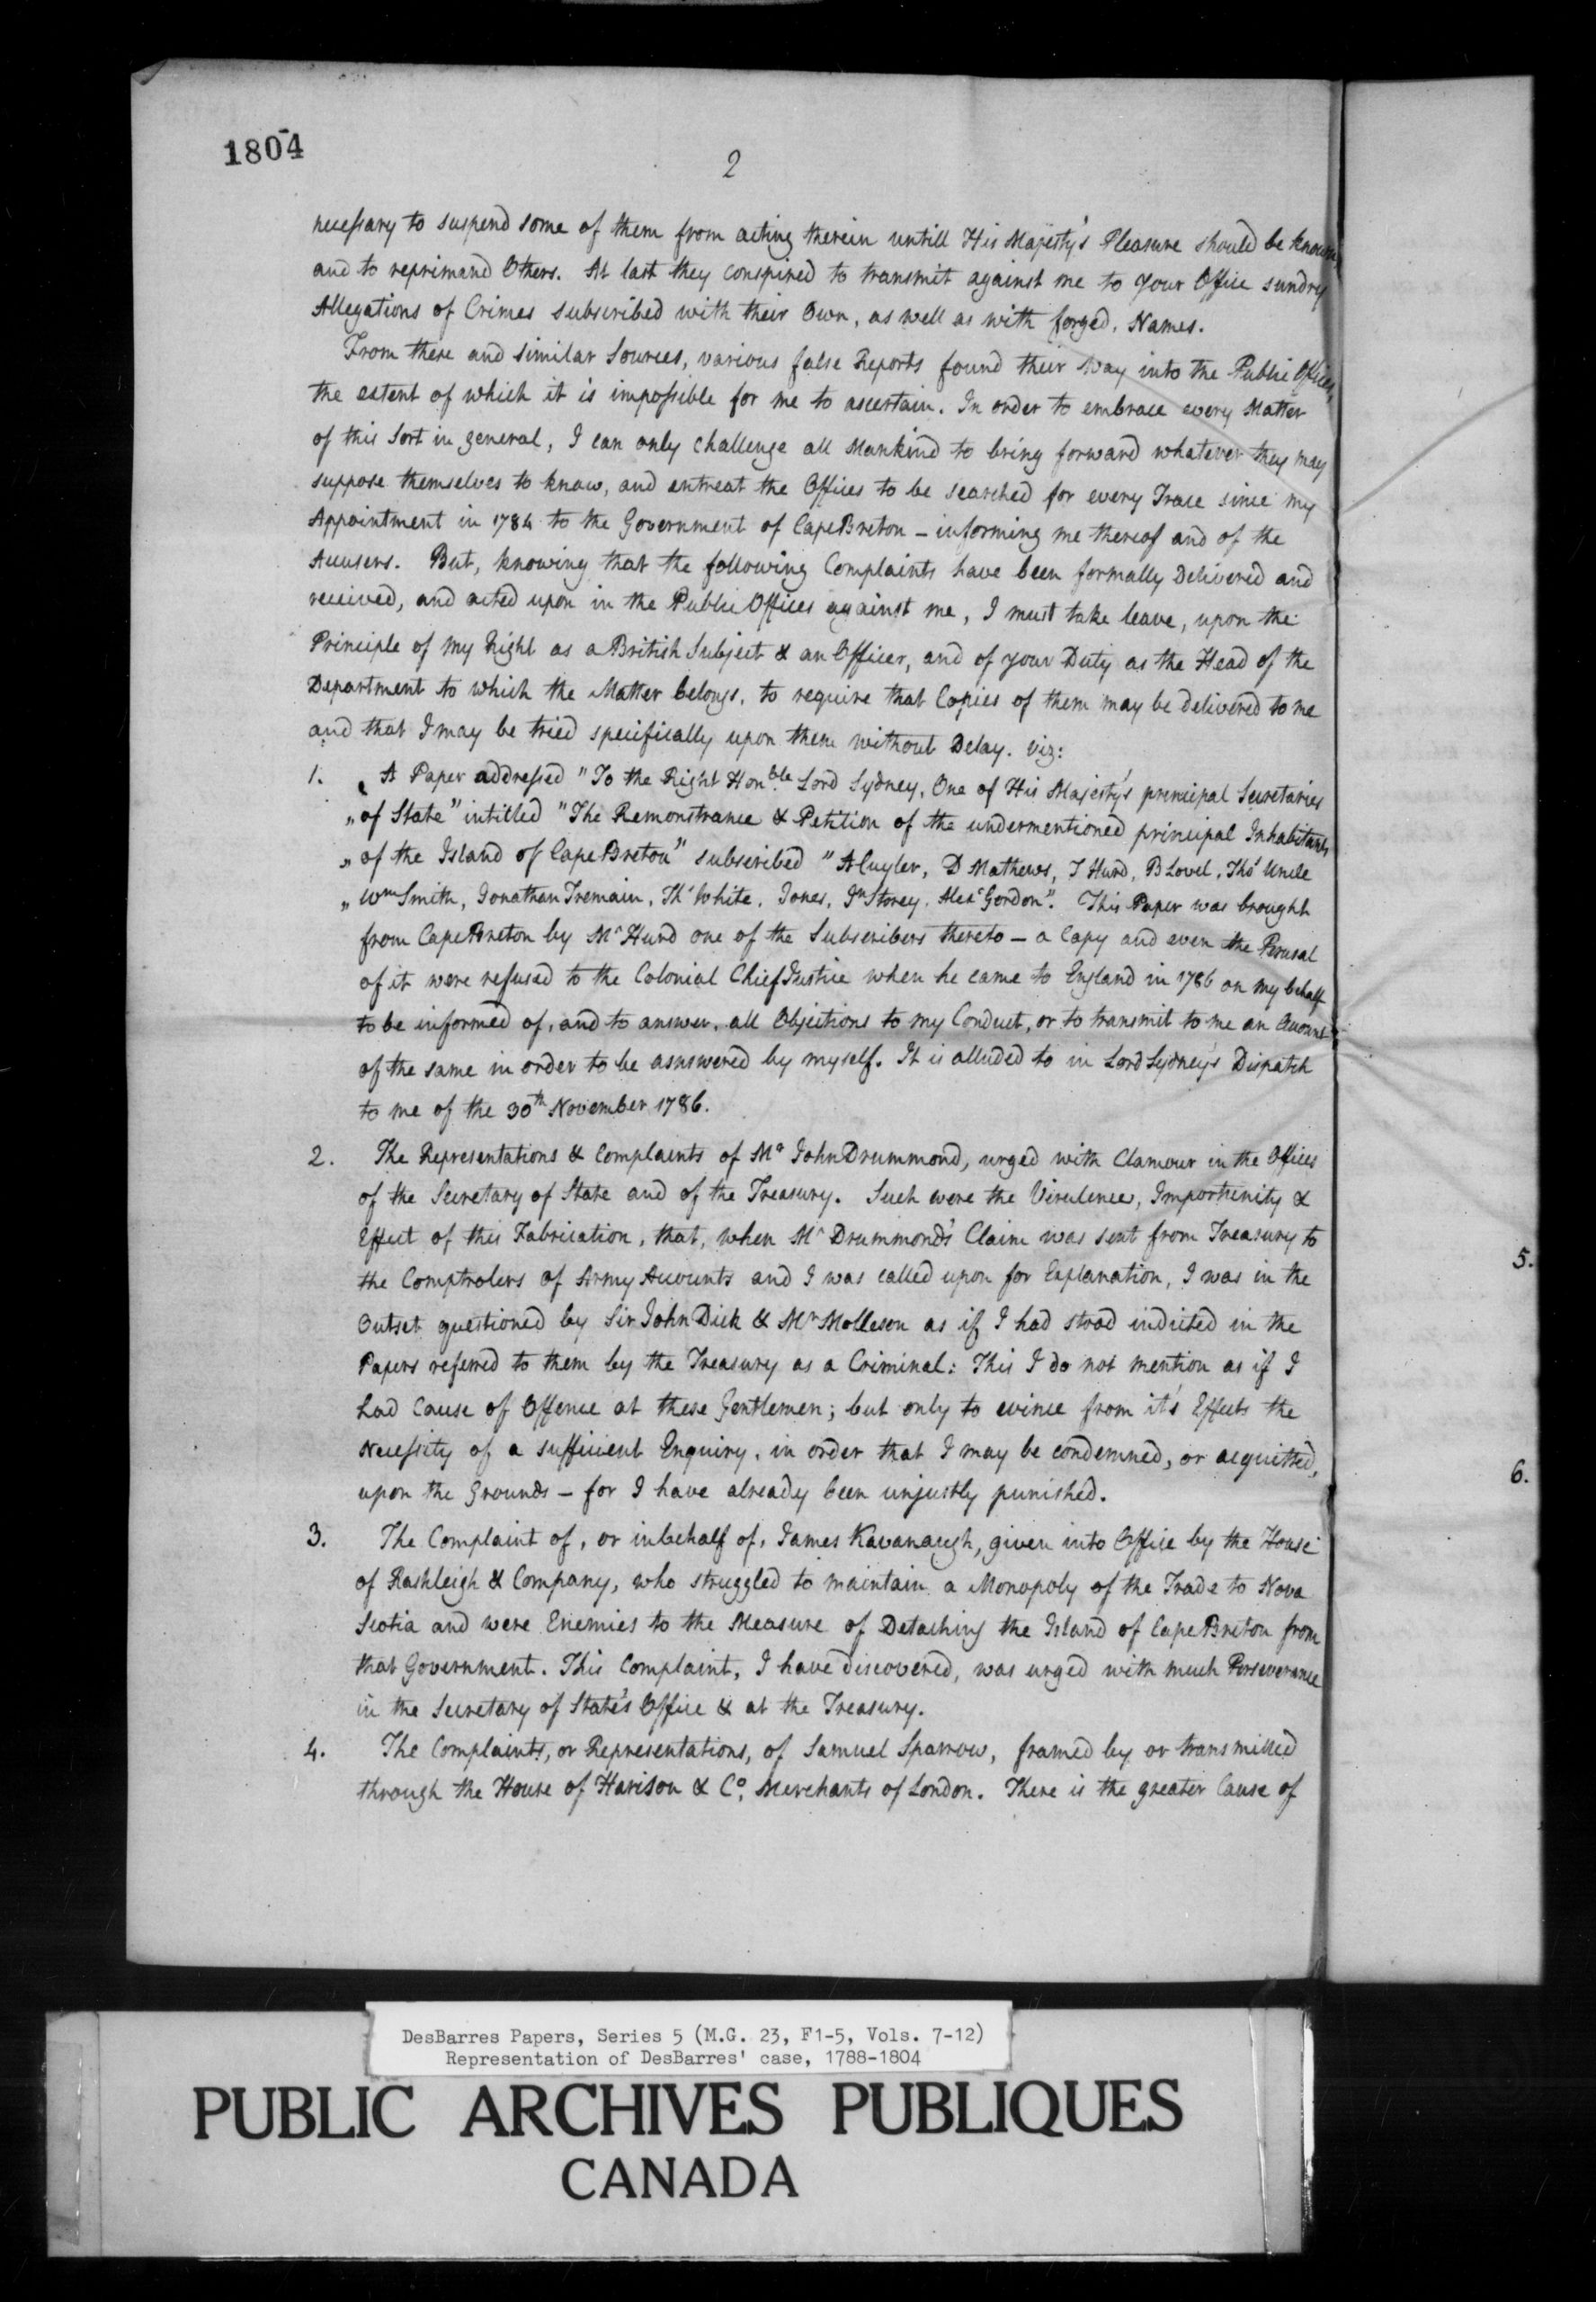 1804
2
necessary to suspend some of them from acting therein untill His Majesty's Pleasure should be known,
and to reprimand Others. At last they conspired to transmit against me to your Office sundry
Allegations of Crimes subscribed with their Own, as well as with forged, Names.
From these and similar Sources, various false Reports found their way into the Public Offices,
the extent of which it is impossible for me to ascertain. In order to embrace every Matter
of this Sort in general, I can only challenge all Mankind to bring forward whatever they may
suppose themselves to know, and entreat the Offices to be searched for every Trace since my
Appointment in 1784 to the Government of Cape Breton - informing me thereof and of the
Accusers. But, knowing that the following Complaints have been formally Delivered and
received, and acted upon in the Public Offices against me, I must take leave, upon the
Principle of my Right as a British Subject & an Officer, and of your Duty as the Head of the
Department to which the Matter belongs, to require that Copies of them may be delivered to me
and that I may be tried specifically upon them without Delay. viz:
1. „ A Paper addressed "To the Right Honble Lord Sydney, One of His Majesty's principal Secretaries
„ of State" intitled "The Remonstrance & Petition of the undermentioned principal Inhabitants
„ of the Island of Cape Breton" subscribed "A Cuyler, D Mathews, T Hurd, B Lovel, Thos Uncle
„ Wm Smith, Jonathan Tremain, Th. White, Jones, Jn Storey, Alexr Gordon". This Paper was brought
from Cape Breton by Mr Hurd one of the Subscribers thereto - a Copy and even the Perusal
of it were refused to the Colonial Chief Justice when he came to England in 1786 on my behalf
to be informed of, and to answer, all Objections to my Conduct, or to transmit to me an Account
of the same in order to be asnswered by myself. It is alluded to in Lord Sydney's Dispatch
to me of the 30th November 1786.
2. The Representations & Complaints of Mr John Drummond, urged with Clamour in the Offices
of the Secretary of State and of the Treasury. Such were the Virulence, Importunity &
Effect of this Fabrication, that, when Mr Drummond's Claim was sent from Treasury to
the Comptrolers of Army Accounts and I was called upon for Explanation, I was in the
Outset questioned by Sir John Dick & Mr Molleson as if I had stood indicted in the
Papers referred to them by the Treasury as a Criminal: This I do not mention as if I
had Cause of Offence at these Gentlemen; but only to evince from it's Effects the
Necessity of a sufficient Enquiry, in order that I may be condemned, or acquitted,
upon the Grounds - for I have already been unjustly punished.
3. The Complaint of, or in behalf of, James Kavanaugh, given into Office by the House
of Rashleigh & Company, who struggled to maintain a Monopoly of the Trade to Nova
Scotia and were Enemies to the Measure of Detaching the Island of Cape Breton from
that Government. This Complaint, I have discovered, was urged with much Perseverance
in the Secretary of State's Office & at the Treasury.
4. The Complaints, or Representations, of Samuel Sparrow, framed by or transmitted
through the House of Harison & Co. Merchants of London. There is the greater Cause of
5.
6.
DesBarres Papers, Series 5 (M.G. 23, F1-5, Vols. 7-12)
Representation of DesBarres' case, 1788-1804
PUBLIC ARCHIVES PUBLIQUES
CANADA